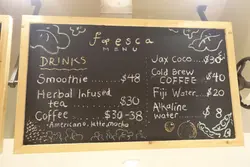 fresca
MENU
DRINKS
Smoothie ..... $48
Herbal Infused
tea ..... $30
Coffee ..... $30-38
Americano, latte, mocha
Jax Coco.... $30
Cold Brew
COFFEE $40
Fiji Water.. $20
Alkaline
water $8